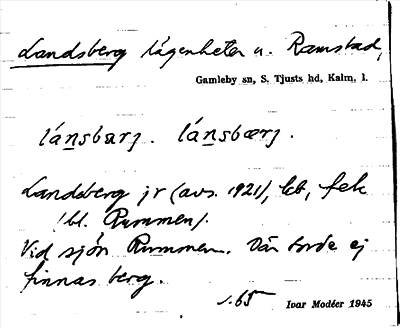 Landsberg lägenheter u. Ramstad,
Gamleby sn, S. Tjusts hd, Kalm. l.
lánsbarj. lánsbærj.
Landsberg jr (avs. 1921), lht, fek
(bl. Rummen).
Vid sjön Rummen. Där borde ej
finnas berg.
s. 65 Ivar Modéer 1945